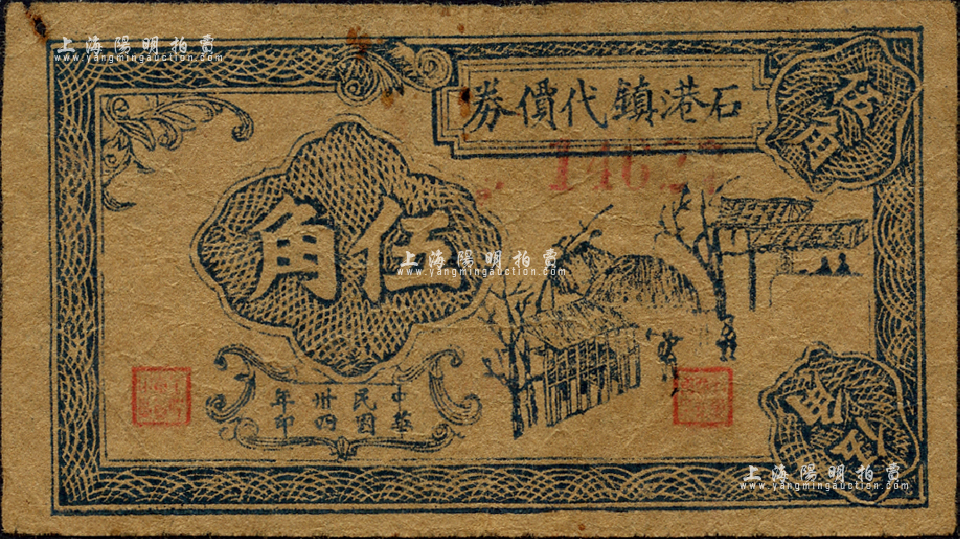 上海陽明拍賣
www.yangmingauction.com
石港鎮代價券
伍角
伍角
上海陽明拍賣
www.yangmingauction.com
中華
民國
卅四
年印
上海陽明拍賣
www.yangmingauction.com